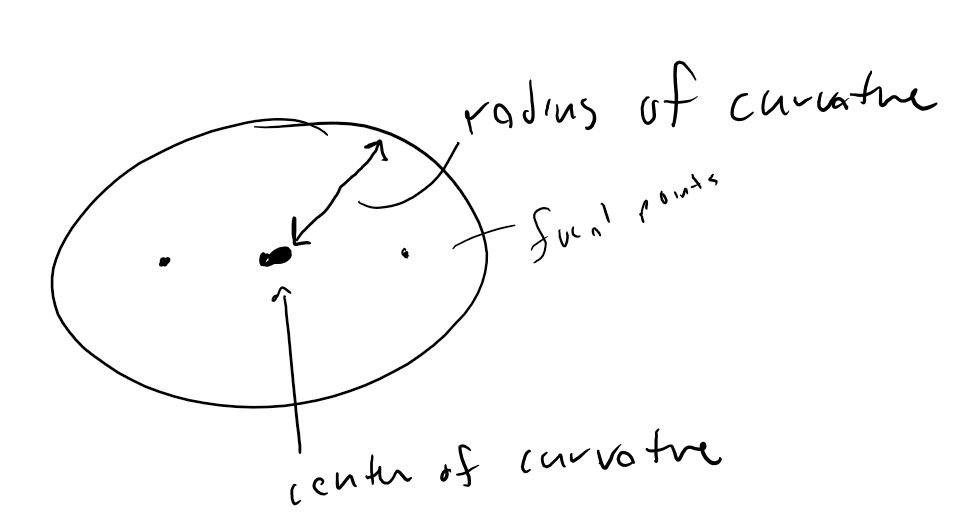 radius of curvature
focal points
center of curvature